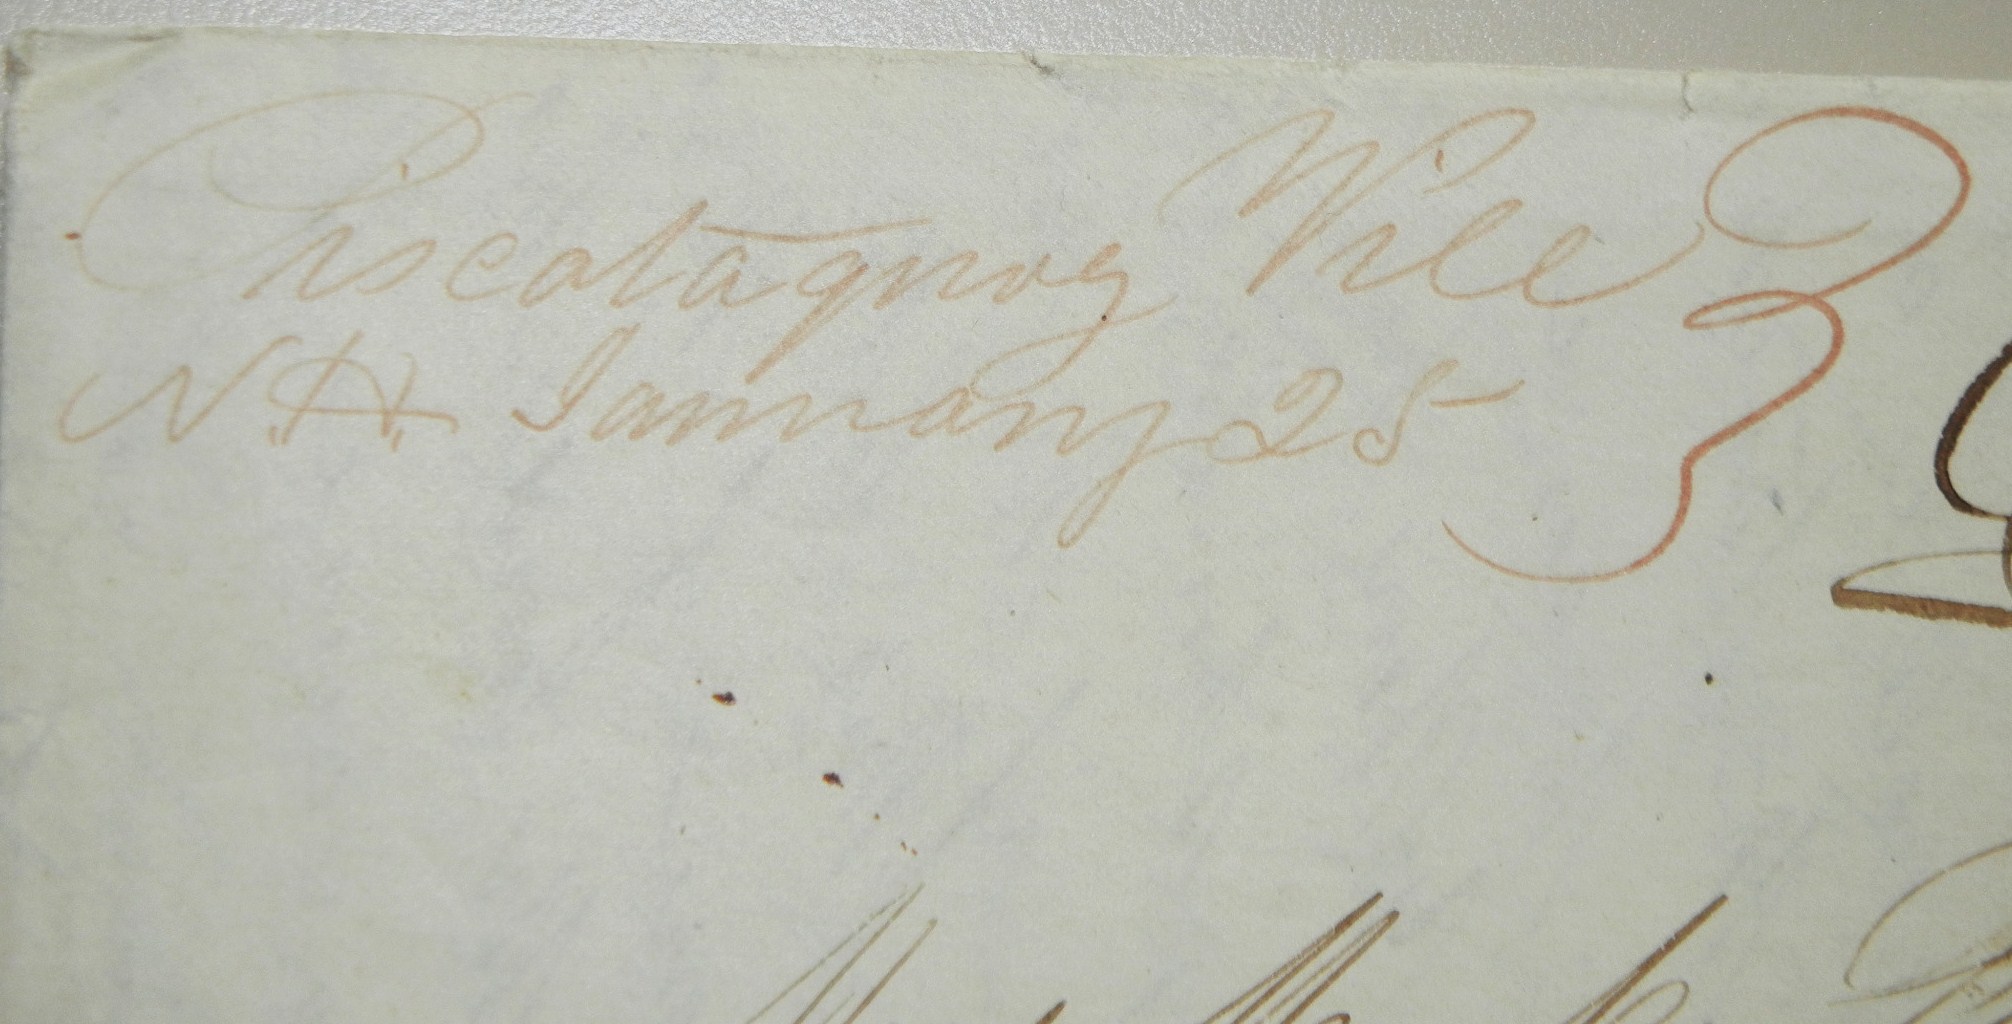 Piscataquog Ville
N.H. January 25